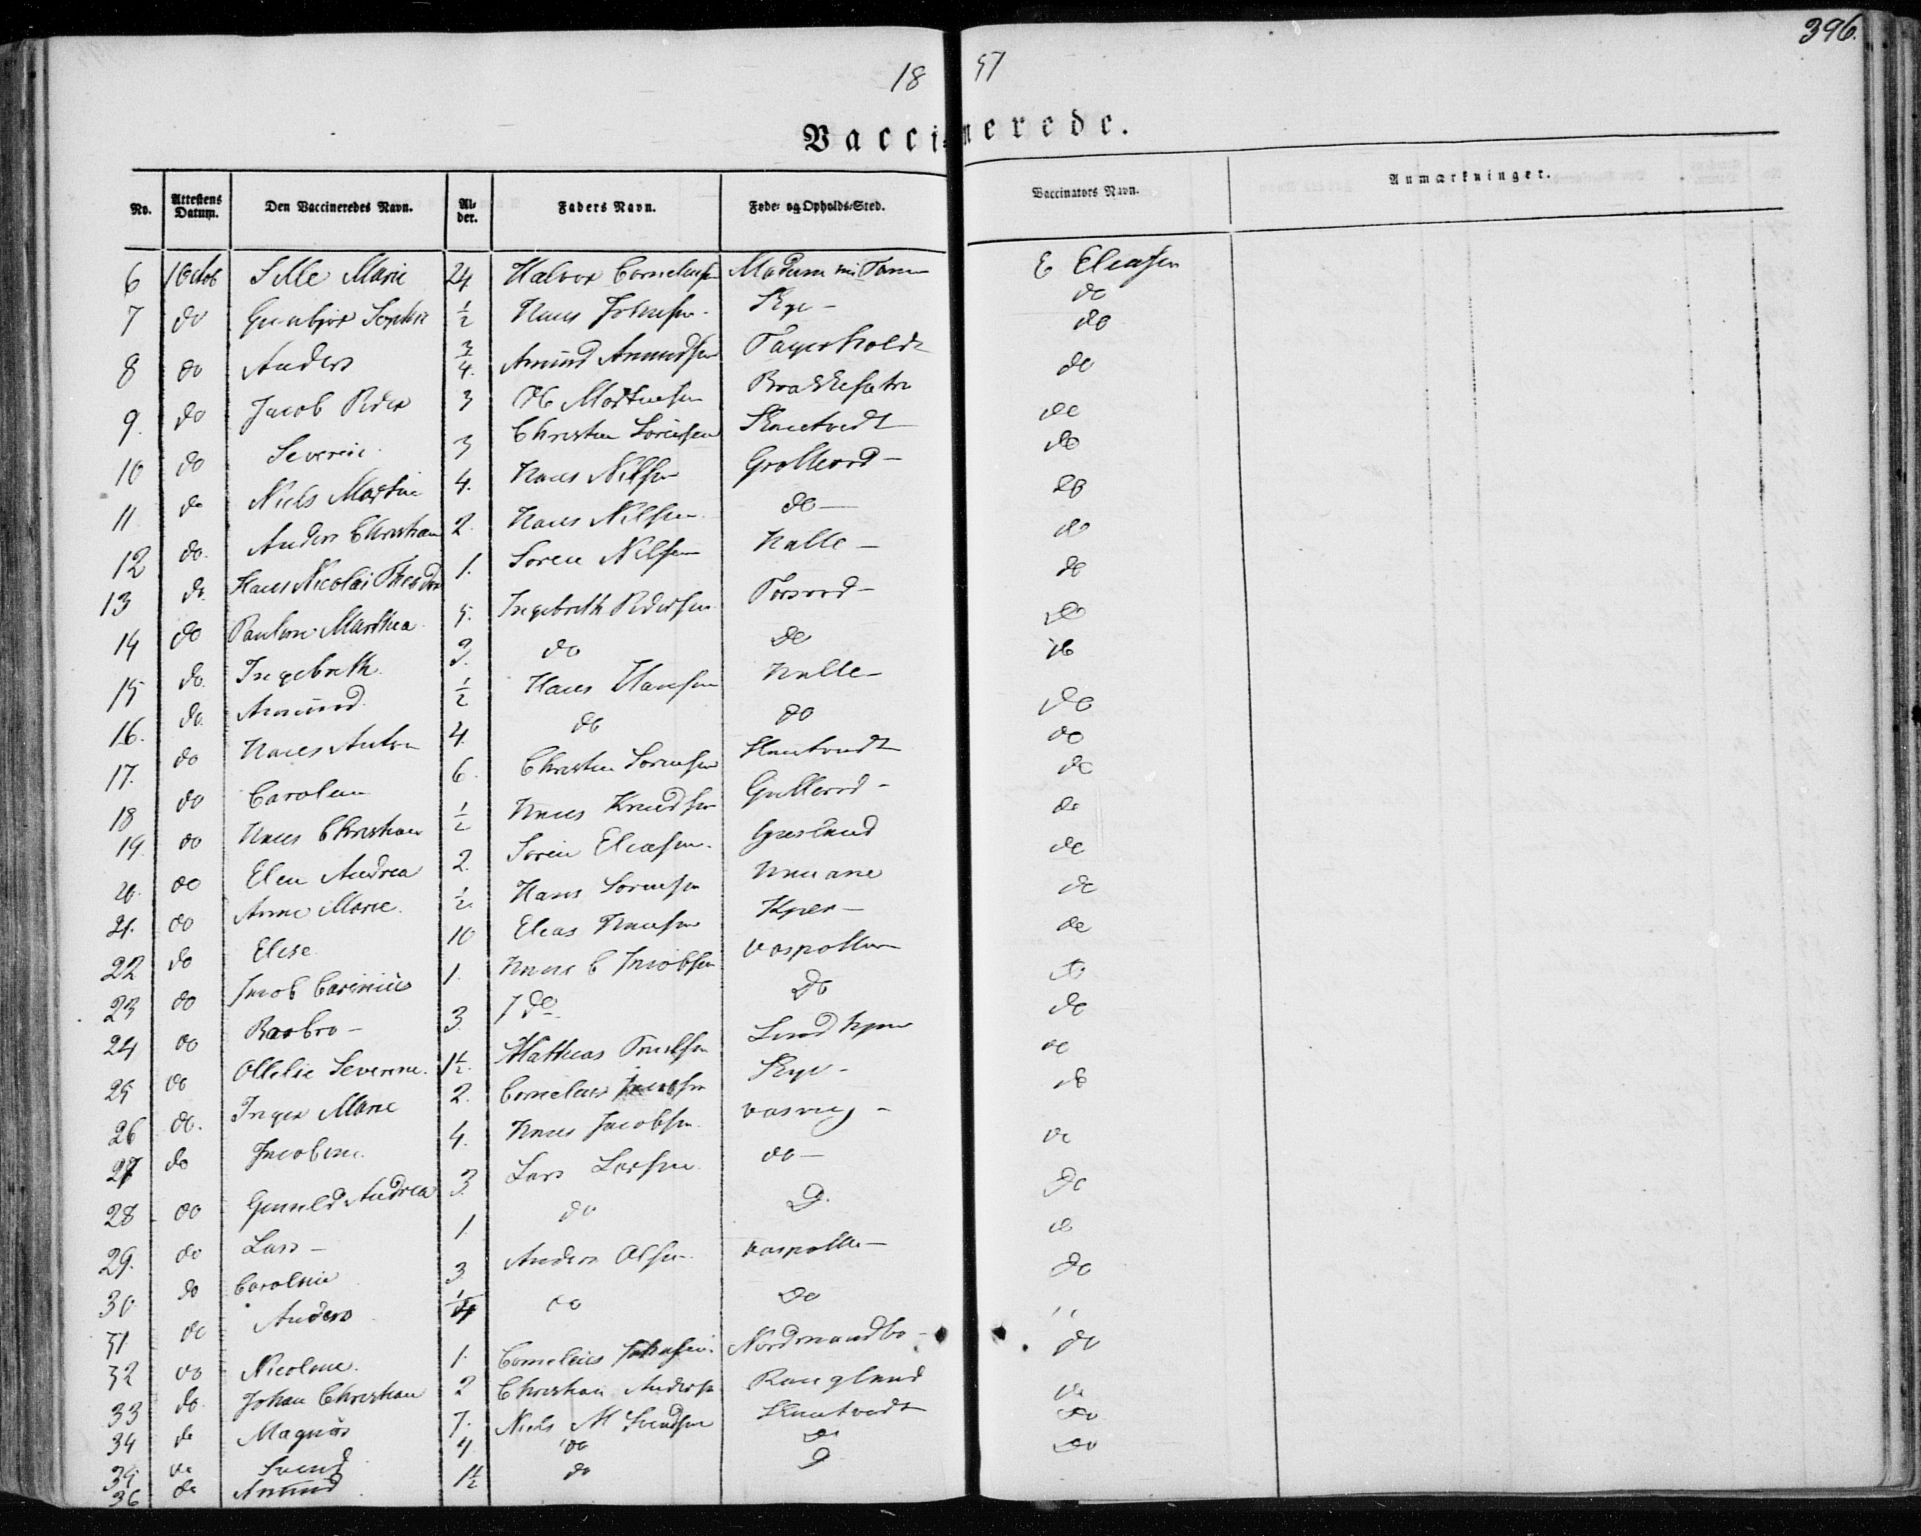 396.
18 57
Vaccinerede.
No. Attestens Datum. Den Vaccineredes Navn. Alder. Faders Navn. Føde- og Opholds-Sted. Vaccinators Navn. Anmærkninger.
6 1 Octob Sille Marie 24 Halvor Corneliusen E Eliasen
7 do Sophie 1/2 Hans Johnsen - Skye - do
8 do Anders 3/4 Amund Amundsen Fagerholdt do
9. do Jacob Peder 3 Ole Mortensen do
10 do Severin 3 Christen Sörensen Skautvedt do
11 do Niels Martin 4. Hans Nilsen Grollerod - do
12 do. Anders Christian 2. Hans Nilsen do - do
13 do. Hans Nicolai Theodor 1. Soren Nilsen Halle - do
14 do Pauline Marthea 5. Ingebreth Pedersen Torsrod - do
15 do. Ingebreth 3. do do do
16. do. Amund 1/2 Hans Hansen Halle - do
17. do Hans Anton 4. do do do
18 do Caroline 6. Christen Sorensen Skautvedt do
19 do Hans Christian 1/2 Hans Knudsen Gullerod - do
20. do Elen Andrea 2. Soren Eliasen. Gresland do
21. do Anne Marie 1/2 Hans Sorensen do
22 do Elise 10 Elias Hansen Kjær - do
23 do Jacob Carinius 1. Hans C Jacobsen Vaspollen do
24 do Barbro - 3. do Do do
25 do Ollelie Severine. 1 1/2. Mathias Truelsen do
26 do. Inger Marie 2. Cornelius Skye - do
27 do Jacobine 4. Hans Jacobsen Vasvig - do
28 do Gunild Andrea 3. Lars Larsen do - do
29. do Lars - 1. do D. do
30 do Caroline 3. Anders Olsen Vaspollen - do
31. do Anders 1/4 do Do "
32 do Nicoline. 1. Cornelius Johnsen. Nordmandbo - do
33 do. Johan Christian 2 Christian Andersen Ringland do
34 do Magnus 7. Niels M Svendsen Skautvedt do
35 do Svend 4 do do do
36 do Amund 1 1/2 do D